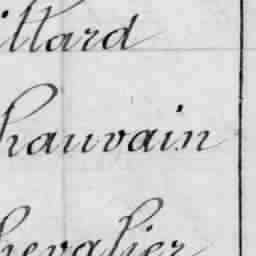 illard
hauvain
hevalier